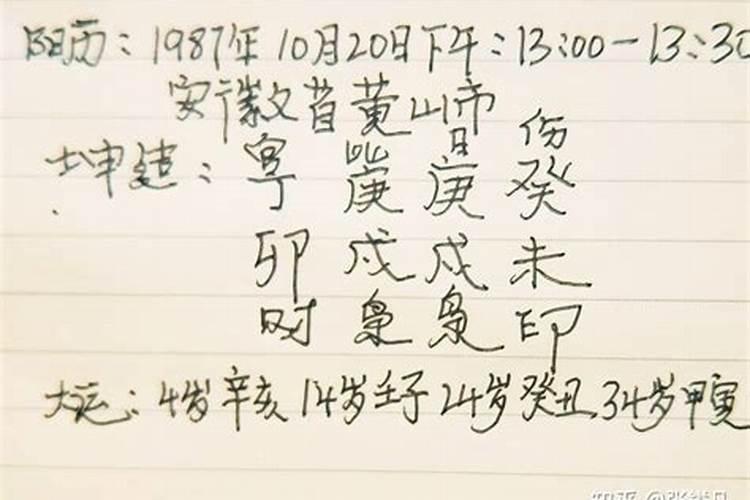 阳历：1987年10月20日下午：13:00-13:30
安徽省黄山市
坤建：官 比 日 伤
丁 庚 庚 癸
卯 戌 戌 未
财 枭 枭 印
大运：4岁辛亥 14岁壬子 24岁癸丑 34岁甲寅
知乎